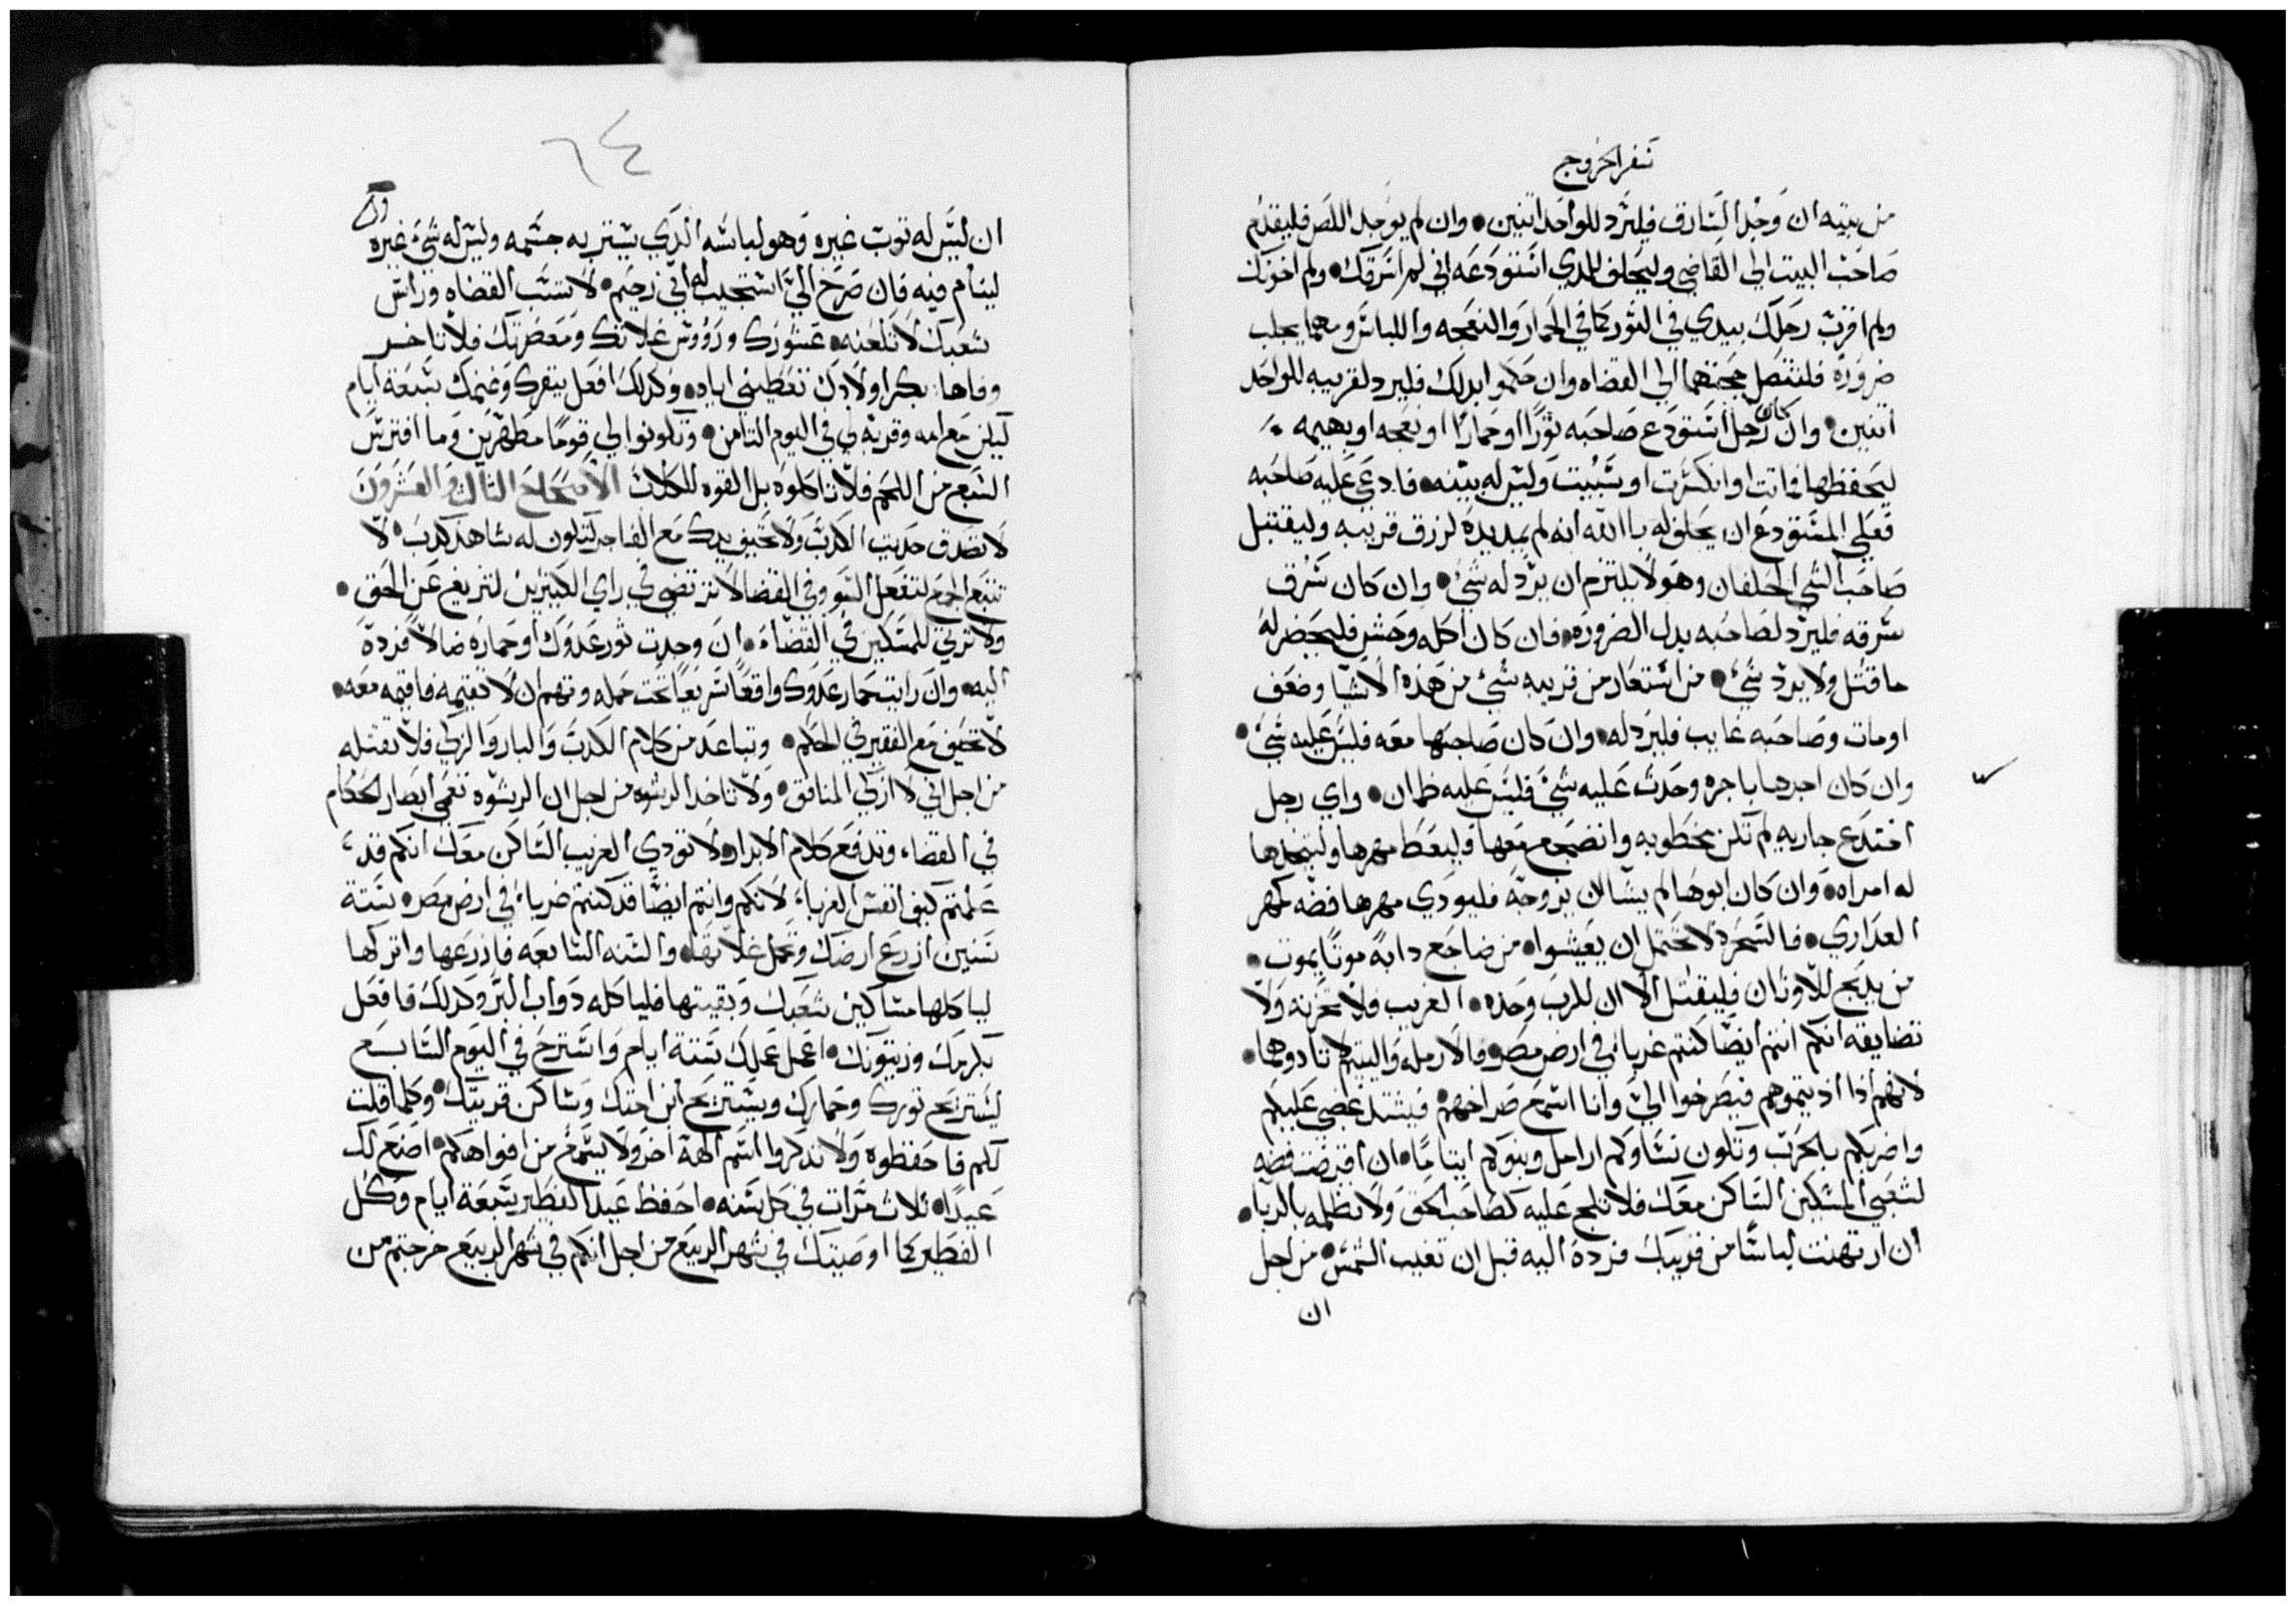 سفر الخروج
من بيته ان وجد السارق فليرد للواحد اتنين وان لم يوجد اللص فليقدم
صاحب البيت الي القاضي وليحلف للدي استودعه اني لم اسرقك ولم اخونك
ولم افزت رحلك بيدي في الثور كما في الحمار والنعجه واللباس ومهما يجلب
ضروره فلتتصل حجتهما الي القضاه وان حكموا بدلك فليرد لقريبه للواحد
اتنين وان كان رجل استودع صاحبه ثورًا او حمارًا او نعجه او بهيمه
ليحفظها فماتت او انكسرت او سبيت وليس له بينه فادعي عليه صاحبه
فعلي المستودع ان يحلف له باالله انه لم يمد يده لرزق قريبه وليقتبل
صاحب الشي الحلفان وهو لا يلتزم ان يرد له شي وان كان سرق
سرقه فليرد لصاحبه بدل الضروره فان كان اكله وحش فليحضر له
ما قتل ولا يرد شي من استعار من قريبه شي من هذه الاشيا وضعف
او مات وصاحبه غايب فليرد له وان كان صاحبها معه فليس عليه شي
وان كان اجرها باجره وحدث عليه شي فليس عليه ضمان واي رجل
اختدع جاريه لم تكن مخطوبه وانضجع معها فليعط مهرها وليتخدها
له امراه وان كان ابوها لم يشا ان يزوجه فليودي مهرها فضه كمهر
العداري فالسحره لا تحتمل ان يعيشوا من ضاجع دابه موتًا يموت
من يدبح للاوتان فليقتل الا ان للرب وحده الغريب فلا تحزنه ولا
تضايقه انكم انتم ايضًا كنتم غرباء في ارض مصر فالارمله واليتيم لا تادوهما
لانهم اذا اذيتموهم فيصرخوا الي وانا اسمع صراخهم فيشتد غضبي عليكم
واضربكم بالحرب وتكون نساوكم ارامل وبنوكم ايتامًا ان اقرضت فضه
لشعبي المسكين الساكن معك فلا تلح عليه كصاحب الحق ولا تظلمه بالربا
ان ارتهنت لباسًا من قريبك فرده اليه قبل ان تغيب الشمس من اجل
ان
٦٤
ان ليس له توب غيره وهو لباسه الدي يستتر به جسمه وليس له شي غيره
لينام فيه فان صرخ الي استجيب له اني رحيم لا تسب القضاه وراس
شعبك لا تلعنه عشورك وروؤس غلاتك ومعصرتك فلا تاخر
وفاها بكر اولادك تعطيني اياه وكدلك افعل ببقرك وغنمك سبعة ايام
ليكن مع امه وقربه لي في اليوم التامن وتكونوا لي قومًا مطهرين وما افترس
السبع من اللحم فلا تاكلوه بل القوه للكلاب الاصحاح التالت والعشرون
لا تصدق حديت الكدب ولا تحيف يدك مع الفاجر لتكون له شاهد كدب لا
تتبع الجمع لتفعل السو وفي القضا لا ترتضي في راي الكتيرين لتزيغ عن الحق
ولا ترتي للمسكين في القضاء ان وجدت ثور عدوك او حماره ضالًا فرده
اليه وان رايت حمار عدوك واقعًا سريعًا تحت حمله وتهم ان لا تقيمه فاقيمه معه
لا تحيف مع الفقير في الحكم وتباعد من كلام الكدب والبار والزكي فلا تقتله
من اجل اني لا ازكي المنافق ولا تاخد الرشوه من اجل ان الرشوه تعمي ابصار الحكام
في القضاء وتدفع كلام الابرار لا تودي الغريب الساكن معك انكم قد
علمتم كيف انفس الغرباء لانكم وانتم ايضًا قد كنتم غرباء في ارض مصر ستة
سنين ازرع ارضك وتحمل غلاتها والسنه السابعه فازرعها واتركها
لياكلها مساكين شعبك وبقيتها فلياكله دواب البر وكدلك فافعل
بكرمك وزيتونك اعمل عملك ستة ايام واسترح في اليوم السابع
ليستريح ثورك وحمارك ويستريح ابن امتك وساكن قريتك وكلما قلت
لكم فاحفظوه ولا تدكروا اسم الهة اخر ولا يسمع من افواهكم اصنع لك
عيدًا تلات مرات في كل سنه احفظ عيد الفطير سبعة ايام وكل
الفطير كما اوصيتك في شهر الربيع من اجل انكم في شهر الربيع خرجتم من